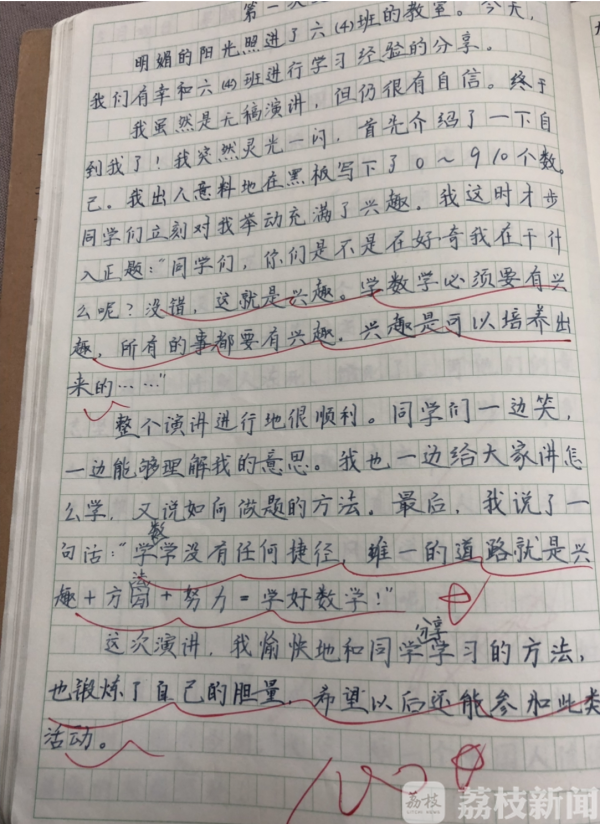 第一次
明媚的阳光照进了六(4)班的教室。今天,
我们有幸和六(4)班进行学习经验的分享。
我虽然是无稿演讲,但仍很有自信。终于
到我了!我突然灵光一闪,首先介绍了一下自
己。我出人意料地在黑板写下了0~9 10个数。
同学们立刻对我举动充满了兴趣。我这时才步
入正题:“同学们,你们是不是在好奇我在干什
么呢?没错,这就是兴趣。学数学必须要有兴
趣,所有的事都要有兴趣。兴趣是可以培养出
来的……”
整个演讲进行地很顺利。同学们一边笑,
一边能够理解我的意思。我也一边给大家讲怎
么学,又说如何做题的方法。最后,我说了一
句话:“学数学没有任何捷径,唯一的道路就是兴
趣+方法+努力=学好数学!”
这次演讲,我愉快地和同学分享学习的方法,
也锻炼了自己的胆量,希望以后还能参加此类
活动。
荔枝
荔枝新闻